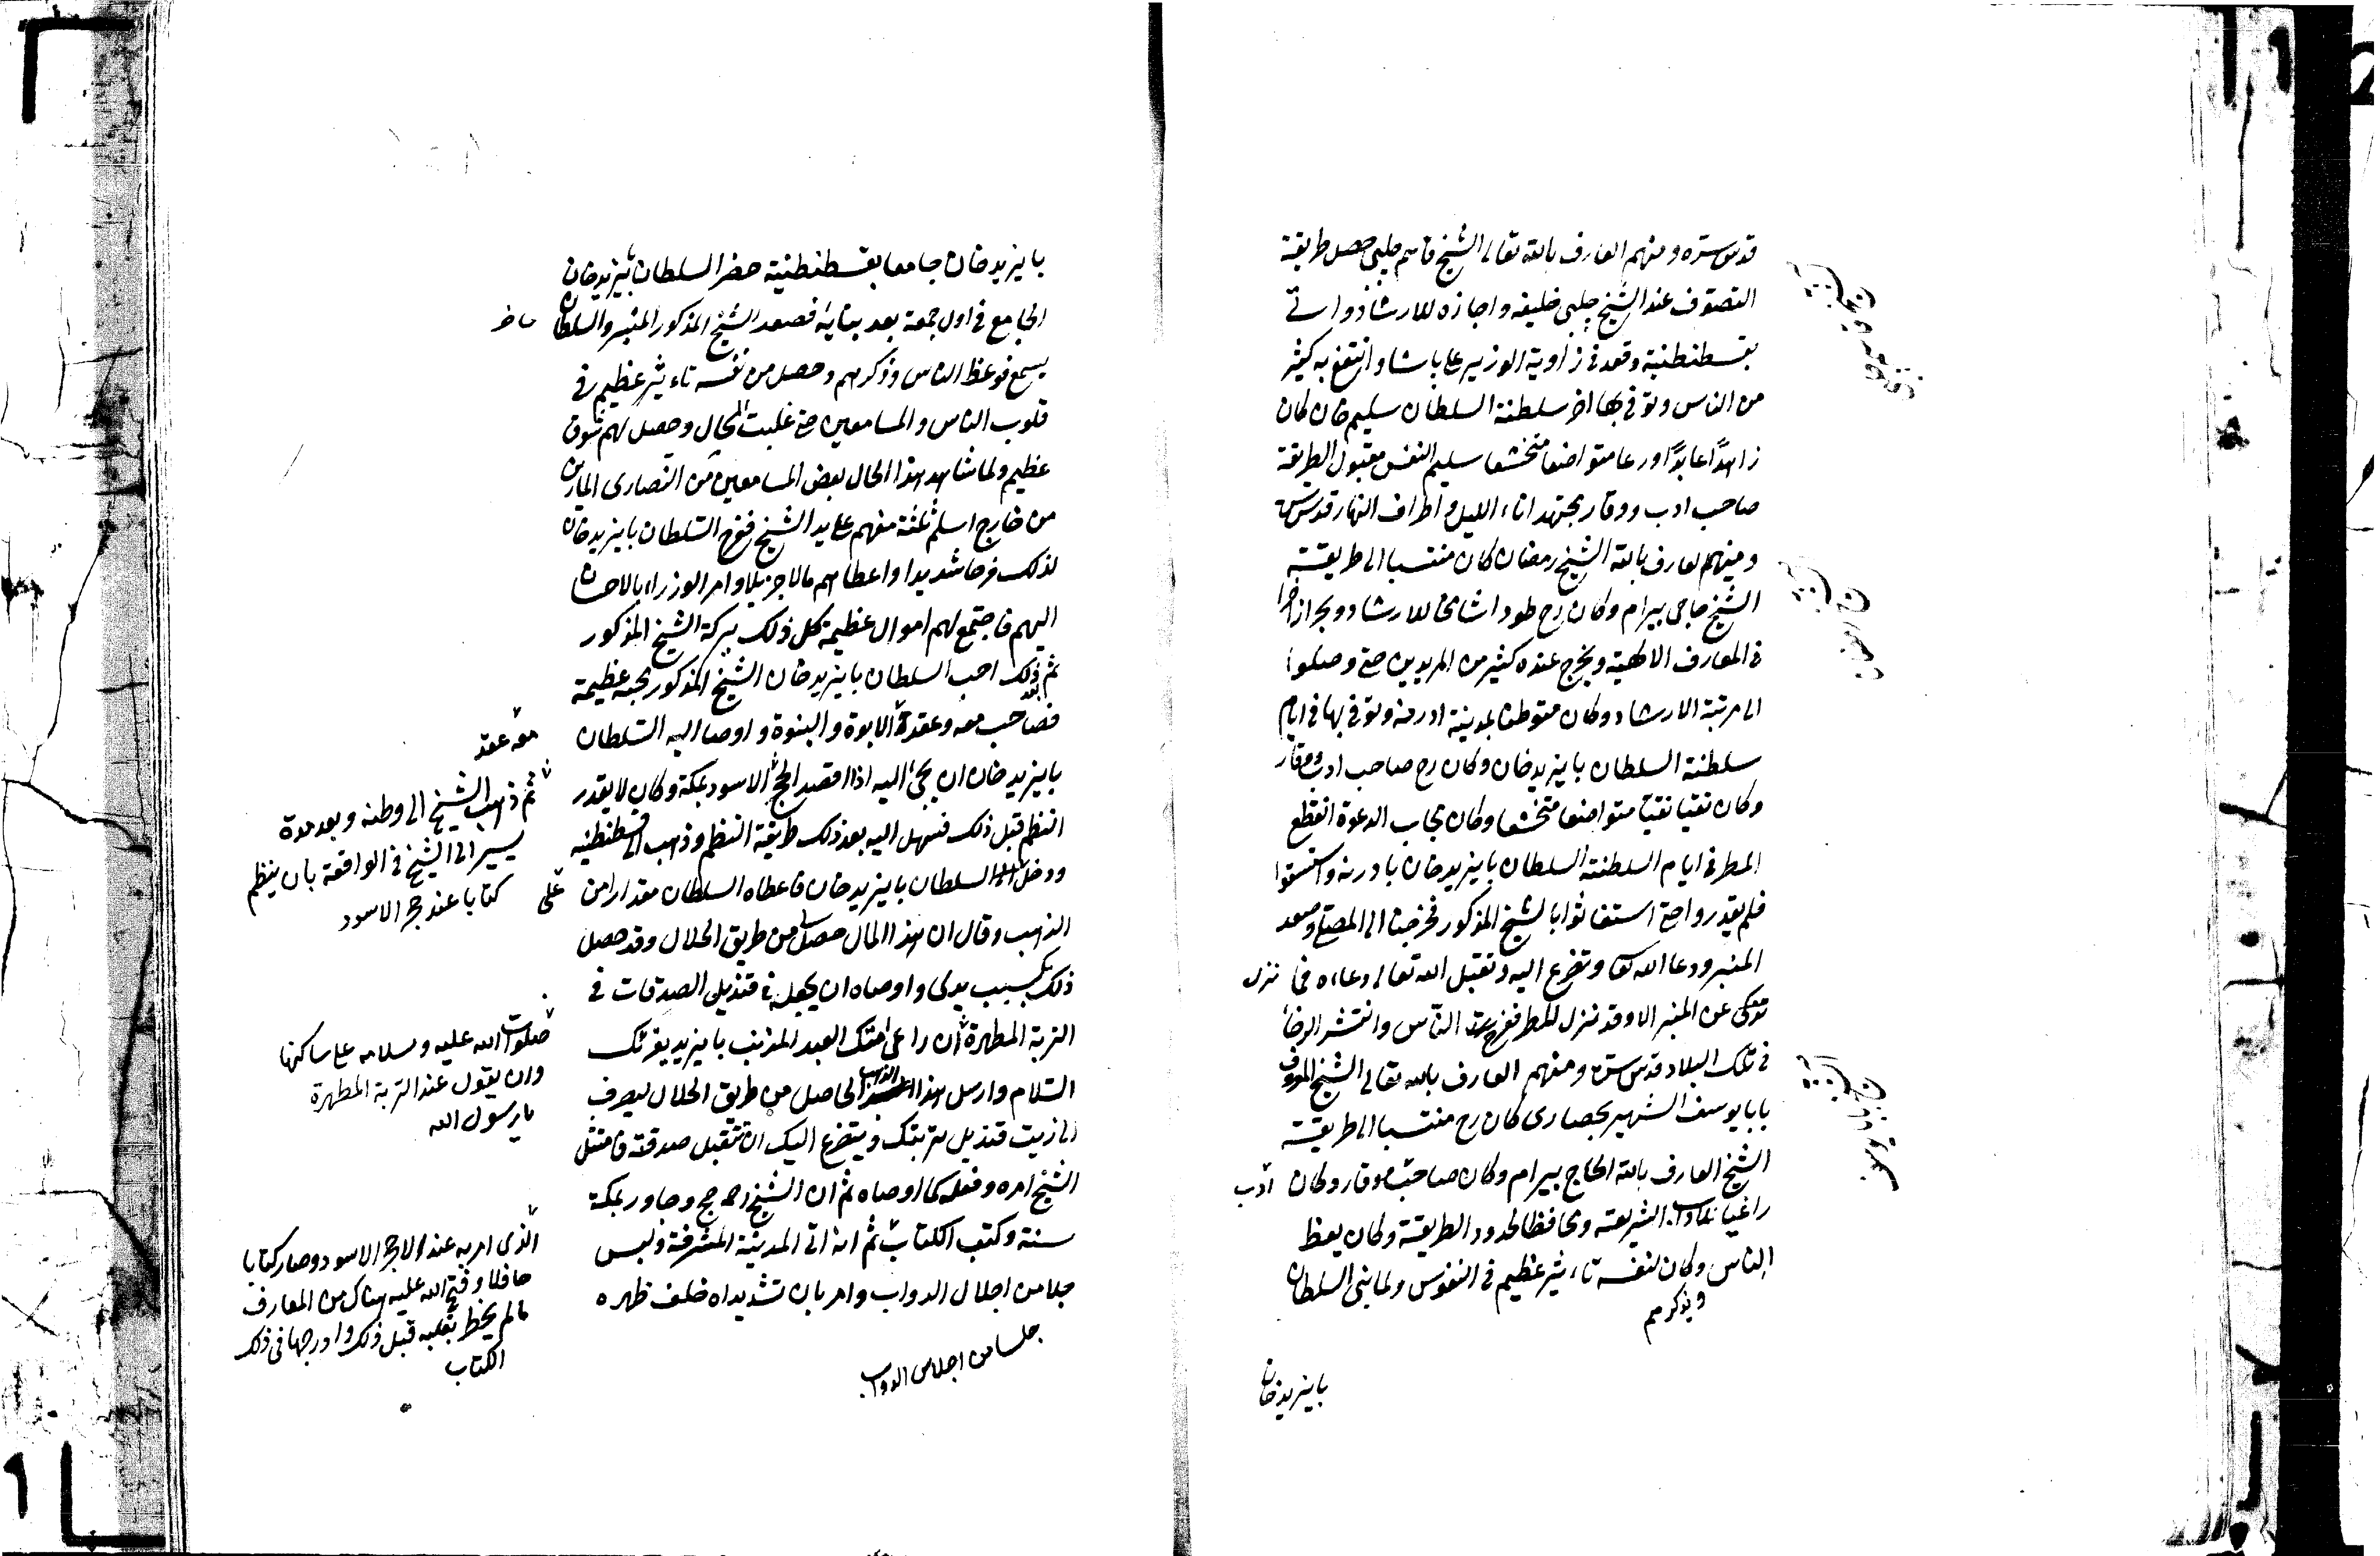 قدس سره ومنهم العارف بالله تعالى الشيخ قاسم چلبي حصل طريقة
التصوف عند الشيخ چلبي خليفه واجازه للارشاد واتى
بقسطنطنية وقعد في زاوية الوزير على پاشا وانتفع به كثير
من الناس وتوفي بها اخر سلطنة السلطان سليم خان كان
زاهدًا عابدًا ورعا متواضعا متخشعا سليم النفس مقبول الطريقة
صاحب ادب ووقار مجتهد اناء الليل واطراف النهار قدس سره
ومنهم العارف بالله الشيخ رمضان كان منتسبا الى طريقة
الشيخ حاجي بيرام وكان رح طودا شامخا للارشاد وبحرا زاخرا
في المعارف الالهية وتخرج عنده كثير من المريدين حتى وصلوا
الى مرتبة الارشاد وكان متوطنا بمدينة ادرنه وتوفي بها في ايام
سلطنة السلطان بايزيد خان وكان رح صاحب ادب ووقار
وكان تقيا نقيا متواضعا متخشعا وكان مجاب الدعوة انقطع
المطر في ايام السلطنة السلطان بايزيد خان بادرنه واستسقوا
فلم يقدروا حتى استغاثوا بالشيخ المذكور فخرجنا الى المصلى وصعد
المنبر ودعا الله تعا وتضرع اليه وتقبل الله تعالى دعاءه فما نزل
عن المنبر الا وقد نزل المطر ففرحت الناس وانتشر الرخاء
في تلك البلاد قدس سره ومنهم العارف بالله تعالى الشيخ المعروف
بابا يوسف الشهير بحصارى كان رح منتسبا الى طريقة
الشيخ العارف بالله الحاج بيرام وكان صاحب وقار وكان ادب
راعيا لاداب الشريعة ومحافظا لحدود الطريقة وكان يعظ
الناس وكان لنفسه تاءثير عظيم في النفوس ولما بنى السلطان
ويذكرهم
بايزيد خان
بايزيد خان جامعا بقسطنطنية حضر السلطان بايزيد خان
الجامع في اول جمعة بعد بنائه فصعد الشيخ المذكور المنبر والسلطان حاضر
يسمع فوعظ الناس وذكرهم وحصل من نفسه تاءثير عظيم في
قلوب الناس والسامعين حتى غلبت الحال وحصل لهم شوق
عظيم ولما شاهد هذا الحال بعض السامعين من النصارى المارين
من خارج اسلم ثلثة منهم على يد الشيخ ففرح السلطان بايزيد خان
لذلك فرحا شديدا واعطاهم مالا جزيلا وامر الوزراء بالاحسان
اليهم فاجتمع لهم اموال عظيمة كل ذلك ببركة الشيخ المذكور
ثم بعد ذلك احب السلطان بايزيد خان الشيخ المذكور محبه عظيمة
فصاحب معه وعقد الابوة والبنوة واوصا اليه السلطان
معه عقد
بايزيد خان ان يجئ اليه اذا قصد الحج الاسود بمكة وكان لا يقدر
ثم ذهب الشيخ الى وطنه وبعد مدة
يسير الى الشيخ في الواقعة بان ينظم
كتابا عند حجر الاسود
النظم قبل ذلك فسهل اليه بعد ذلك طريقة النظم وذهب الى قسطنطنيه
ودخل السلطان بايزيد خان فاعطاه السلطان مقدارا من على
الذهب وقال ان هذا المال حصل لي من طريق الحلال وقد حصل
ذلك بكسب يدى واوصاه ان يجعله في قنديل الصدقات في
التربة المطهرة ان راعى امتك العبد المذنب بايزيد يقرئك
صلوات الله عليه وسلامه على ساكنها
وان يقول عند التربة المطهرة
يا رسول الله
السلام وارسل هذا الذهب الحاصل من طريق الحلال ليصرف
الى زيت قنديل تربتك ويتضرع اليك ان تتقبل صدقته فامتثل
الشيخ امره وفعله كما اوصاه ثم ان الشيخ رح حج وجاور بمكة
سنة وكتب الكتاب ثم انه اتى المدينة المشرفة ولبس
الذى امر به عند الحجر الاسود وصار كتابا
حافلا وفتح الله عليه هناك من المعارف
ما لم يخطر بقلبه قبل ذلك وادرجها في ذلك
الكتاب
جلا من اجلال الدواب وامر بان تشد يداه خلف ظهره
جلسا من اجلاس الدواب